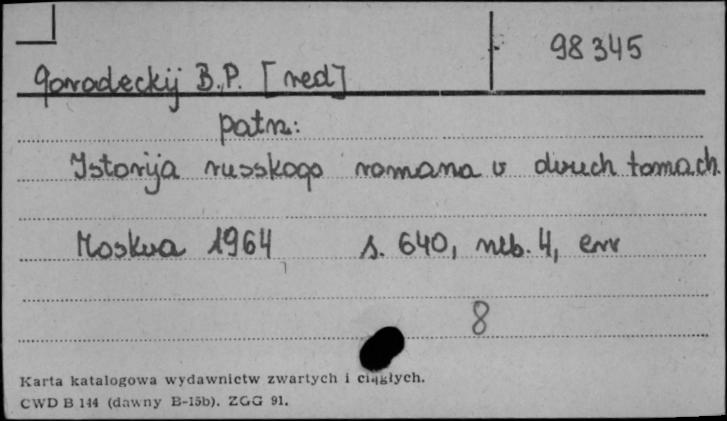 98345
Gorodeckij B.P. [red]
patrz:
Istorija russkogo romana v dvuch tomach.
Moskva 1964 s. 640, nlb. 4, err
8
Karta katalogowa wydawnictw zwartych i ciągłych.
CWD B 144 (dawny B-15b). ZGG 91.